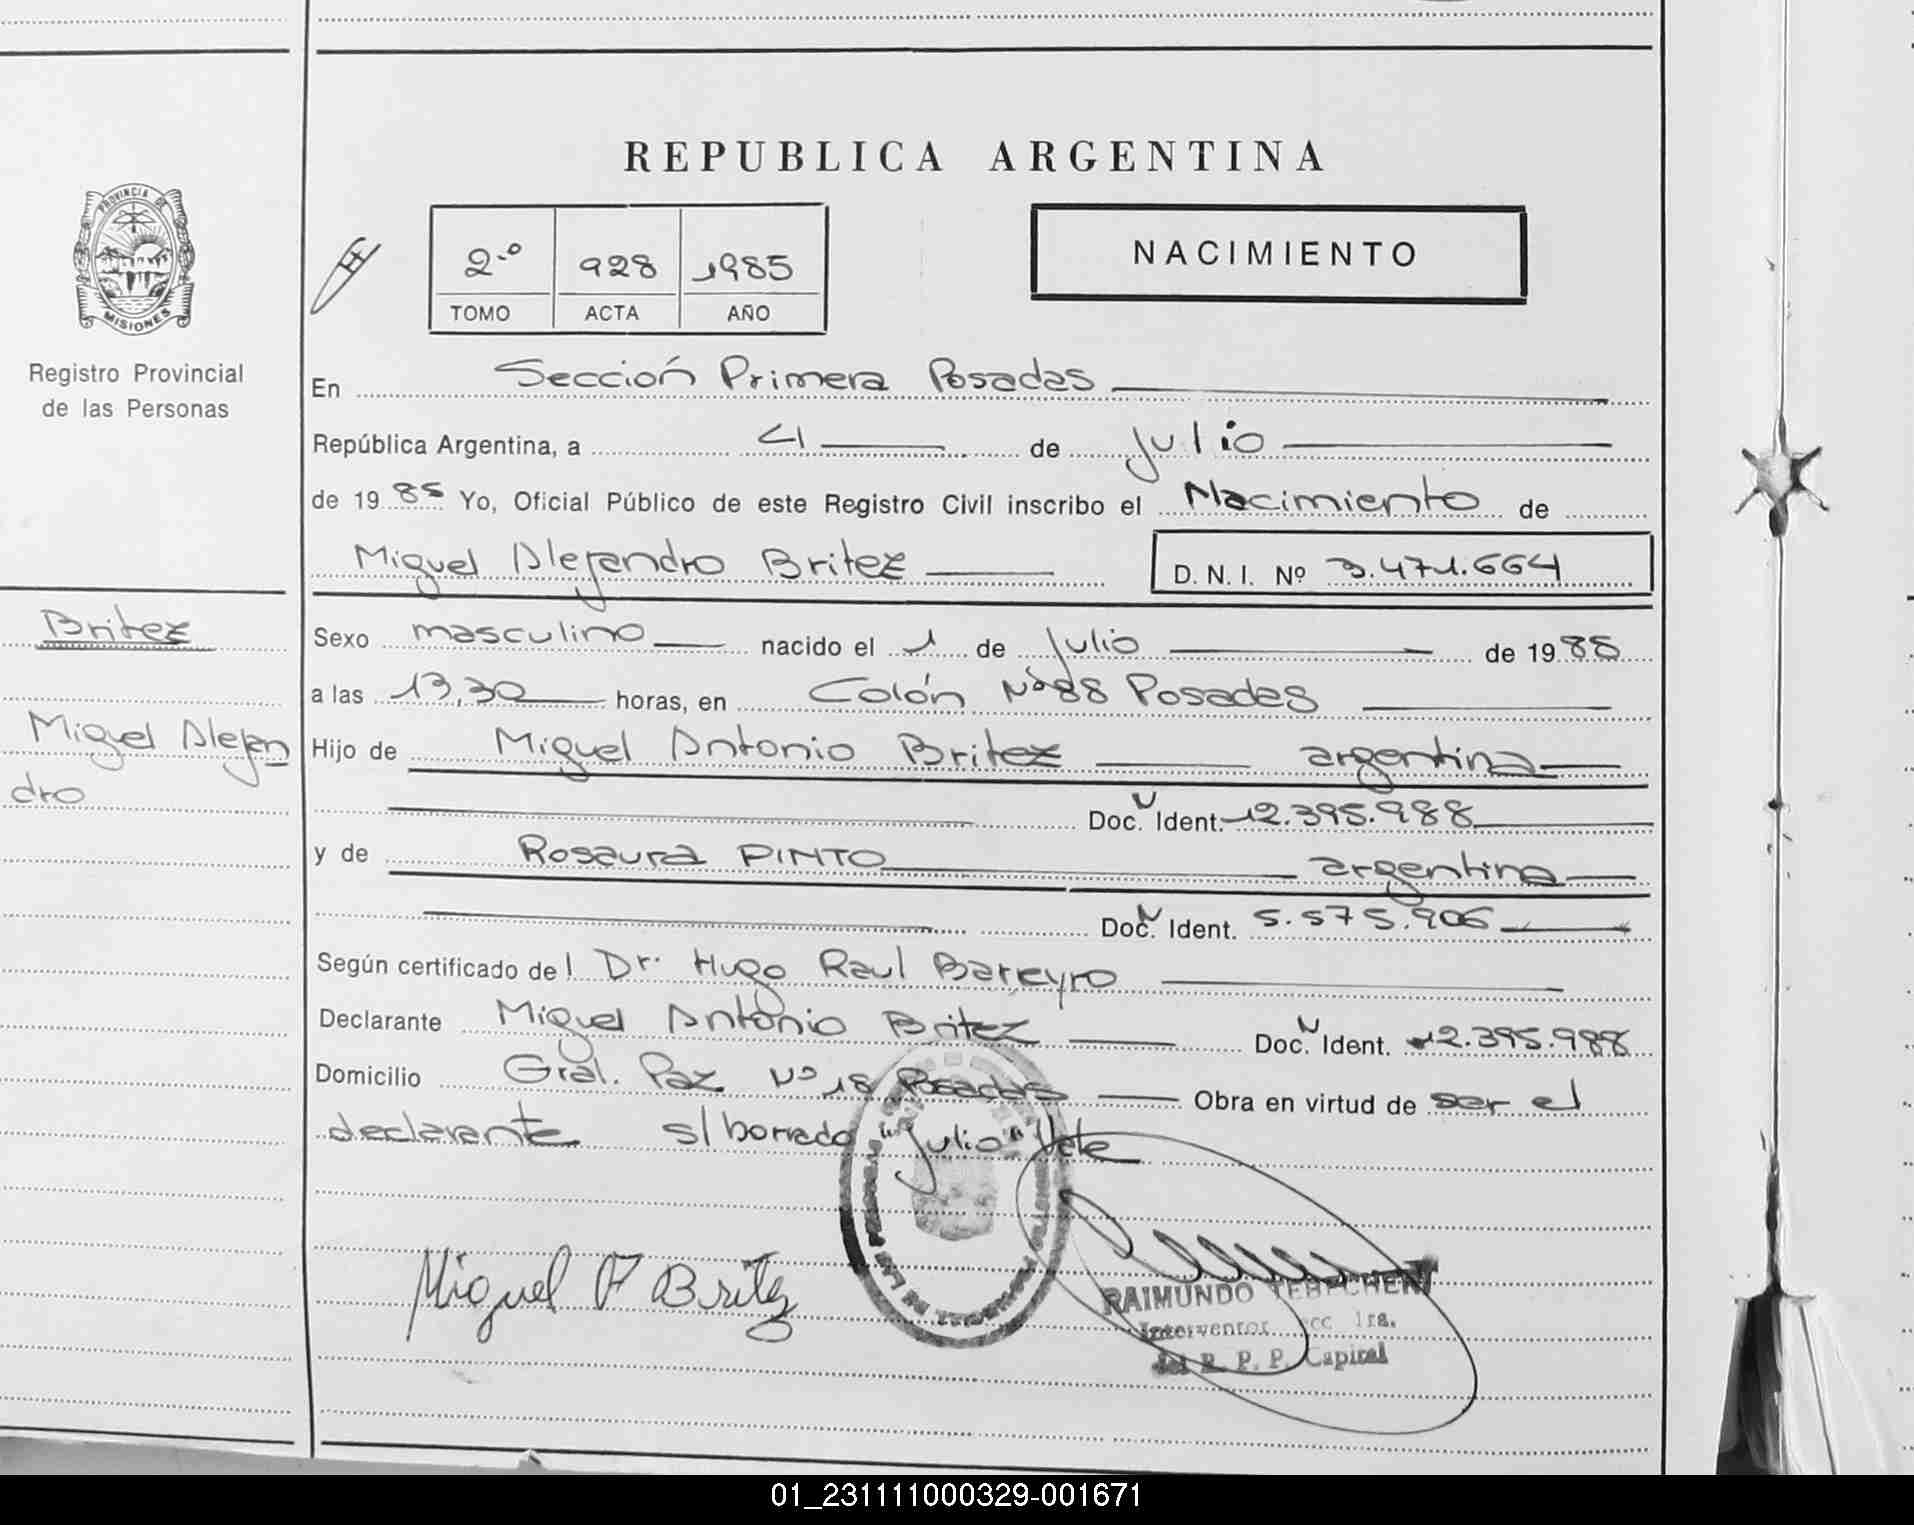 REPUBLICA ARGENTINA
PROVINCIA DE
MISIONES
Registro Provincial
de las Personas
2.º 928 1985
TOMO ACTA AÑO
NACIMIENTO
En Sección Primera Posadas
República Argentina, a 4 de julio
de 1985 Yo, Oficial Público de este Registro Civil inscribo el Nacimiento de
Miguel Alejandro Britez D. N. I. Nº 3.471.664
Britez
Miguel Alejan
dro
Sexo masculino nacido el 1 de julio de 1985
a las 13,30 horas, en Colón Nº 88 Posadas
Hijo de Miguel Antonio Britez argentina
Doc. Ident. 12.395.988
y de Rosaura PINTO argentina
Doc. Ident. 5.575.906
Según certificado del Dr. Hugo Raul Bareyro
Declarante Miguel Antonio Britez Doc. Ident. 12.395.988
Domicilio Gral. Paz Nº 18 Posadas Obra en virtud de ser el
declarante s/borrado "julio" Vale
Miguel A Britez
RAIMUNDO
Interventor Secc 1ra.
del R. P. P. Capital
01_231111000329-001671